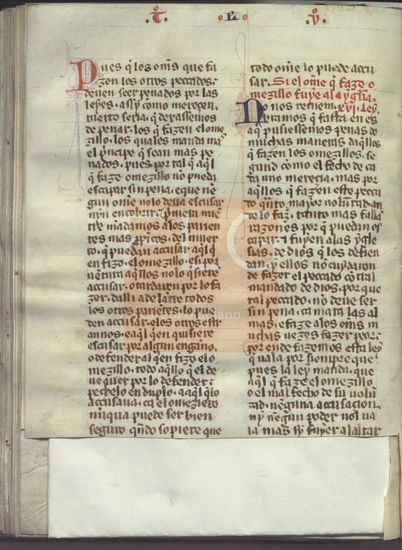 t . vi . v
Pues q̃ los om̃s que fa
zen los otros peccados.
deuen ser penados por las
leyes. assy como merecen.
tuerto seria q̃ derassemos
de penar. los q̃ fazen el ome
zillo. los quales manda ma
el prĩcipe q̃ sean mas pe
nados. pues por tal q̃ aq̃l
q̃ faze omezillo no pueda
escapar sin pena. e que ne
gun ome nolo deua escusar
to mãdamos a los parien
tes mas del muer
to. q̃ puedan acusar aq̃l
en fizo. el omezillo. e si por
uẽtura aq̃llos nolo q̃siere
acusar. o tardaren por lo fa
zer. dalli adelante todos
los otros pariẽtes. lo pue
den accusar. e los otros estr
annos. e aq̃l q̃en quisiere
escusar por algun engeño.
o defender al q̃en fizo el o
mezillo. todo aq̃llo q̃ el de
ue auer por lo defender.
pechelo en duplo. a aq̃l q̃lo
accusaua. ca el omeziero
nũqua puede ser bien
seguro. q̃ndo sopiere que
todo om̃e lo puede accu
sar. Si el om̃e q̃ fazẽ o
mezillo fuye a la yglia.
No nos retiem. xvi. Ley.
bramos q̃ fasta en es
aq̃ pusiessemos penas de
muchas maneras a aq̃llos
q̃ fazen los omezillos. se
gund como el fecho de ca
da uno merecia. mas por
aq̃llos q̃ fazen este pecca
do q̃nto mayor uolũtad an
de lo faz. tãto mas falla
razones por q̃ puedan es
capar. e fuyen a las ygle
sias. de dios q̃ los defien
dan. y ellos no cuydaron
de fazer el peccado cõtra el
mandado de dios. por que
tal peccado. no deue ser
sin pena. ca mata las al
mas. e faze a los om̃s m
uchas uezes fazer por.
por ende fazemos esta ley
q̃ uala por siempre que
pues la ley manda. que
aq̃l q̃ faze el omezillo
o el mal fecho de su uolũ
tad. neguna accusacion.
ny negun poder nol ua
la. mas sy fuyer al altar